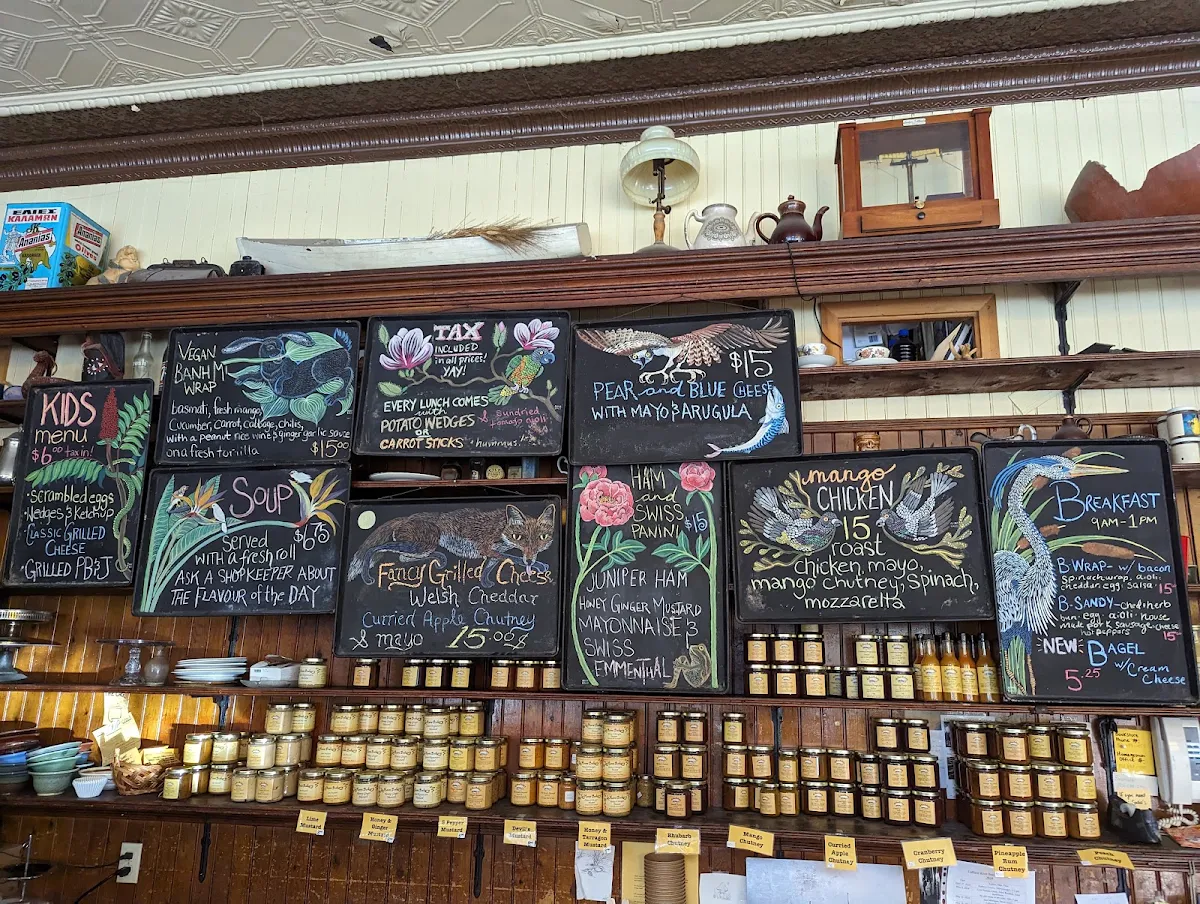 ΕΛΙΕΣ
ΚΑΛΑΜΩΝ
Ananias
Ananias
KIDS
menu
$6.00 tax in!
• Scrambled eggs
• Wedges & Ketchup
• CLASSIC GRILLED
CHEESE
• GRILLED PB&J
VEGAN
BANH MI
WRAP
basmati, fresh mango,
cucumber, carrot, cabbage, chilis,
with a peanut rice vine & ginger garlic sauce
on a fresh tortilla
$15.00
SOUP
$6.75
Served
with a fresh roll
ASK A SHOPKEEPER ABOUT
THE FLAVOUR of the DAY
TAX
INCLUDED
in all prices!
YAY!
EVERY LUNCH COMES
with
POTATO WEDGES
& Sundried
tomato aioli
OR
CARROT STICKS
& hummus
Fancy Grilled Cheese
Welsh Cheddar
Curried Apple Chutney
& mayo 15.00$
$15
PEAR and BLUE CHEESE
WITH MAYO & ARUGULA
HAM
and
SWISS
PANINI
$15
JUNIPER HAM
HONEY GINGER MUSTARD
MAYONNAISE &
SWISS
EMMENTHAL
mango
CHICKEN
15
roast
chicken, mayo,
mango chutney, spinach,
mozzarella
BREAKFAST
9AM-1PM
B-WRAP- w/ bacon
spinach wrap, aioli
cheddar, egg, salsa 15
B-SANDY- ched & herb
bun, egg, aioli, house
made pork sausage, cheese
hot peppers 15
NEW: BAGEL
5.25 w/ Cream
Cheese
Lime
Mustard
Honey &
Ginger
Mustard
3 Pepper
Mustard
Devil's
Mustard
Honey &
Tarragon
Mustard
Rhubarb
Chutney
Mango
Chutney
Curried
Apple
Chutney
Cranberry
Chutney
Pineapple
Rum
Chutney
Peach
Chutney